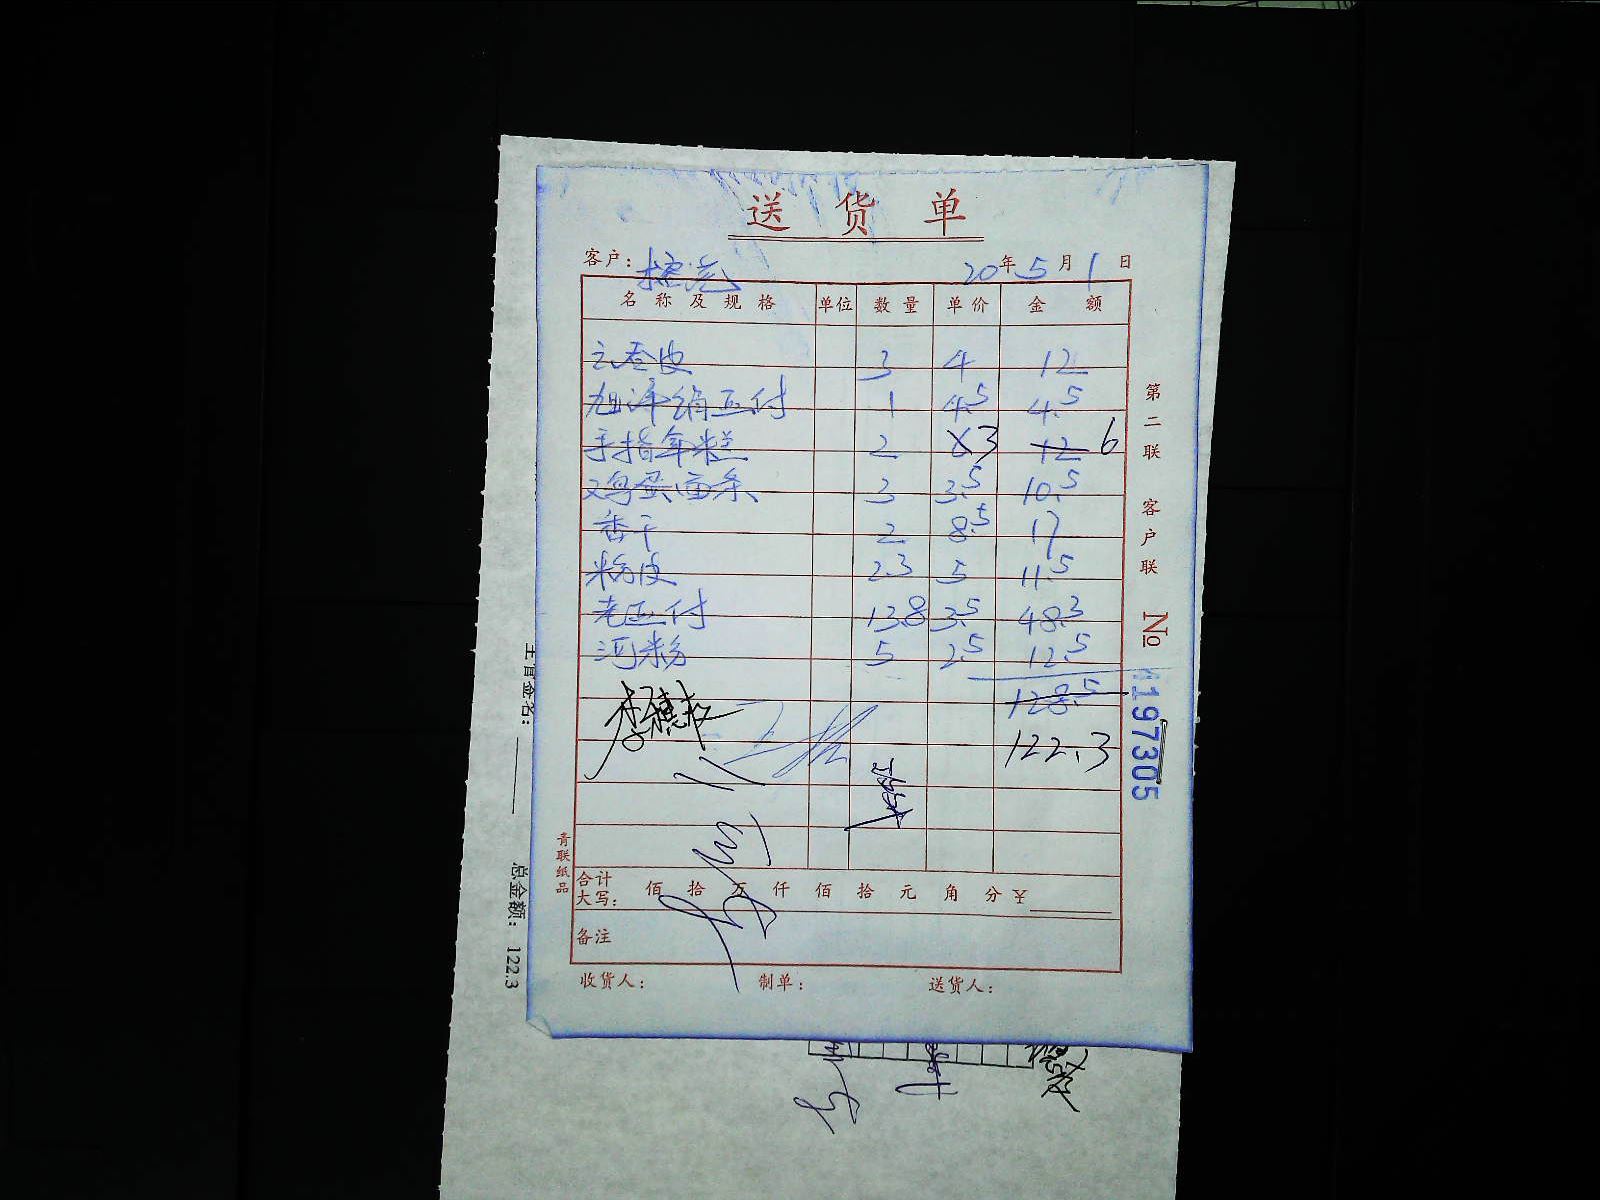 送货单
客户： 20年5月1日
名称及规格 单位 数量 单价 金额
云吞皮 3 4 12
旭洋绢豆付 1 4.5 4.5
手指年糕 2 3 12 6
鸡蛋面条 3 3.5 10.5
香干 2 8.5 17
粉皮 2.3 5 11.5
老豆付 13.8 3.5 48.3
河粉 5 2.5 12.5
128.5
122.3
合计大写： 佰 拾 万 仟 佰 拾 元 角 分 ¥
备注
收货人： 制单： 送货人：
第二联 客户联 No 1197305
青联纸品
主管签名：
总金额： 122.3